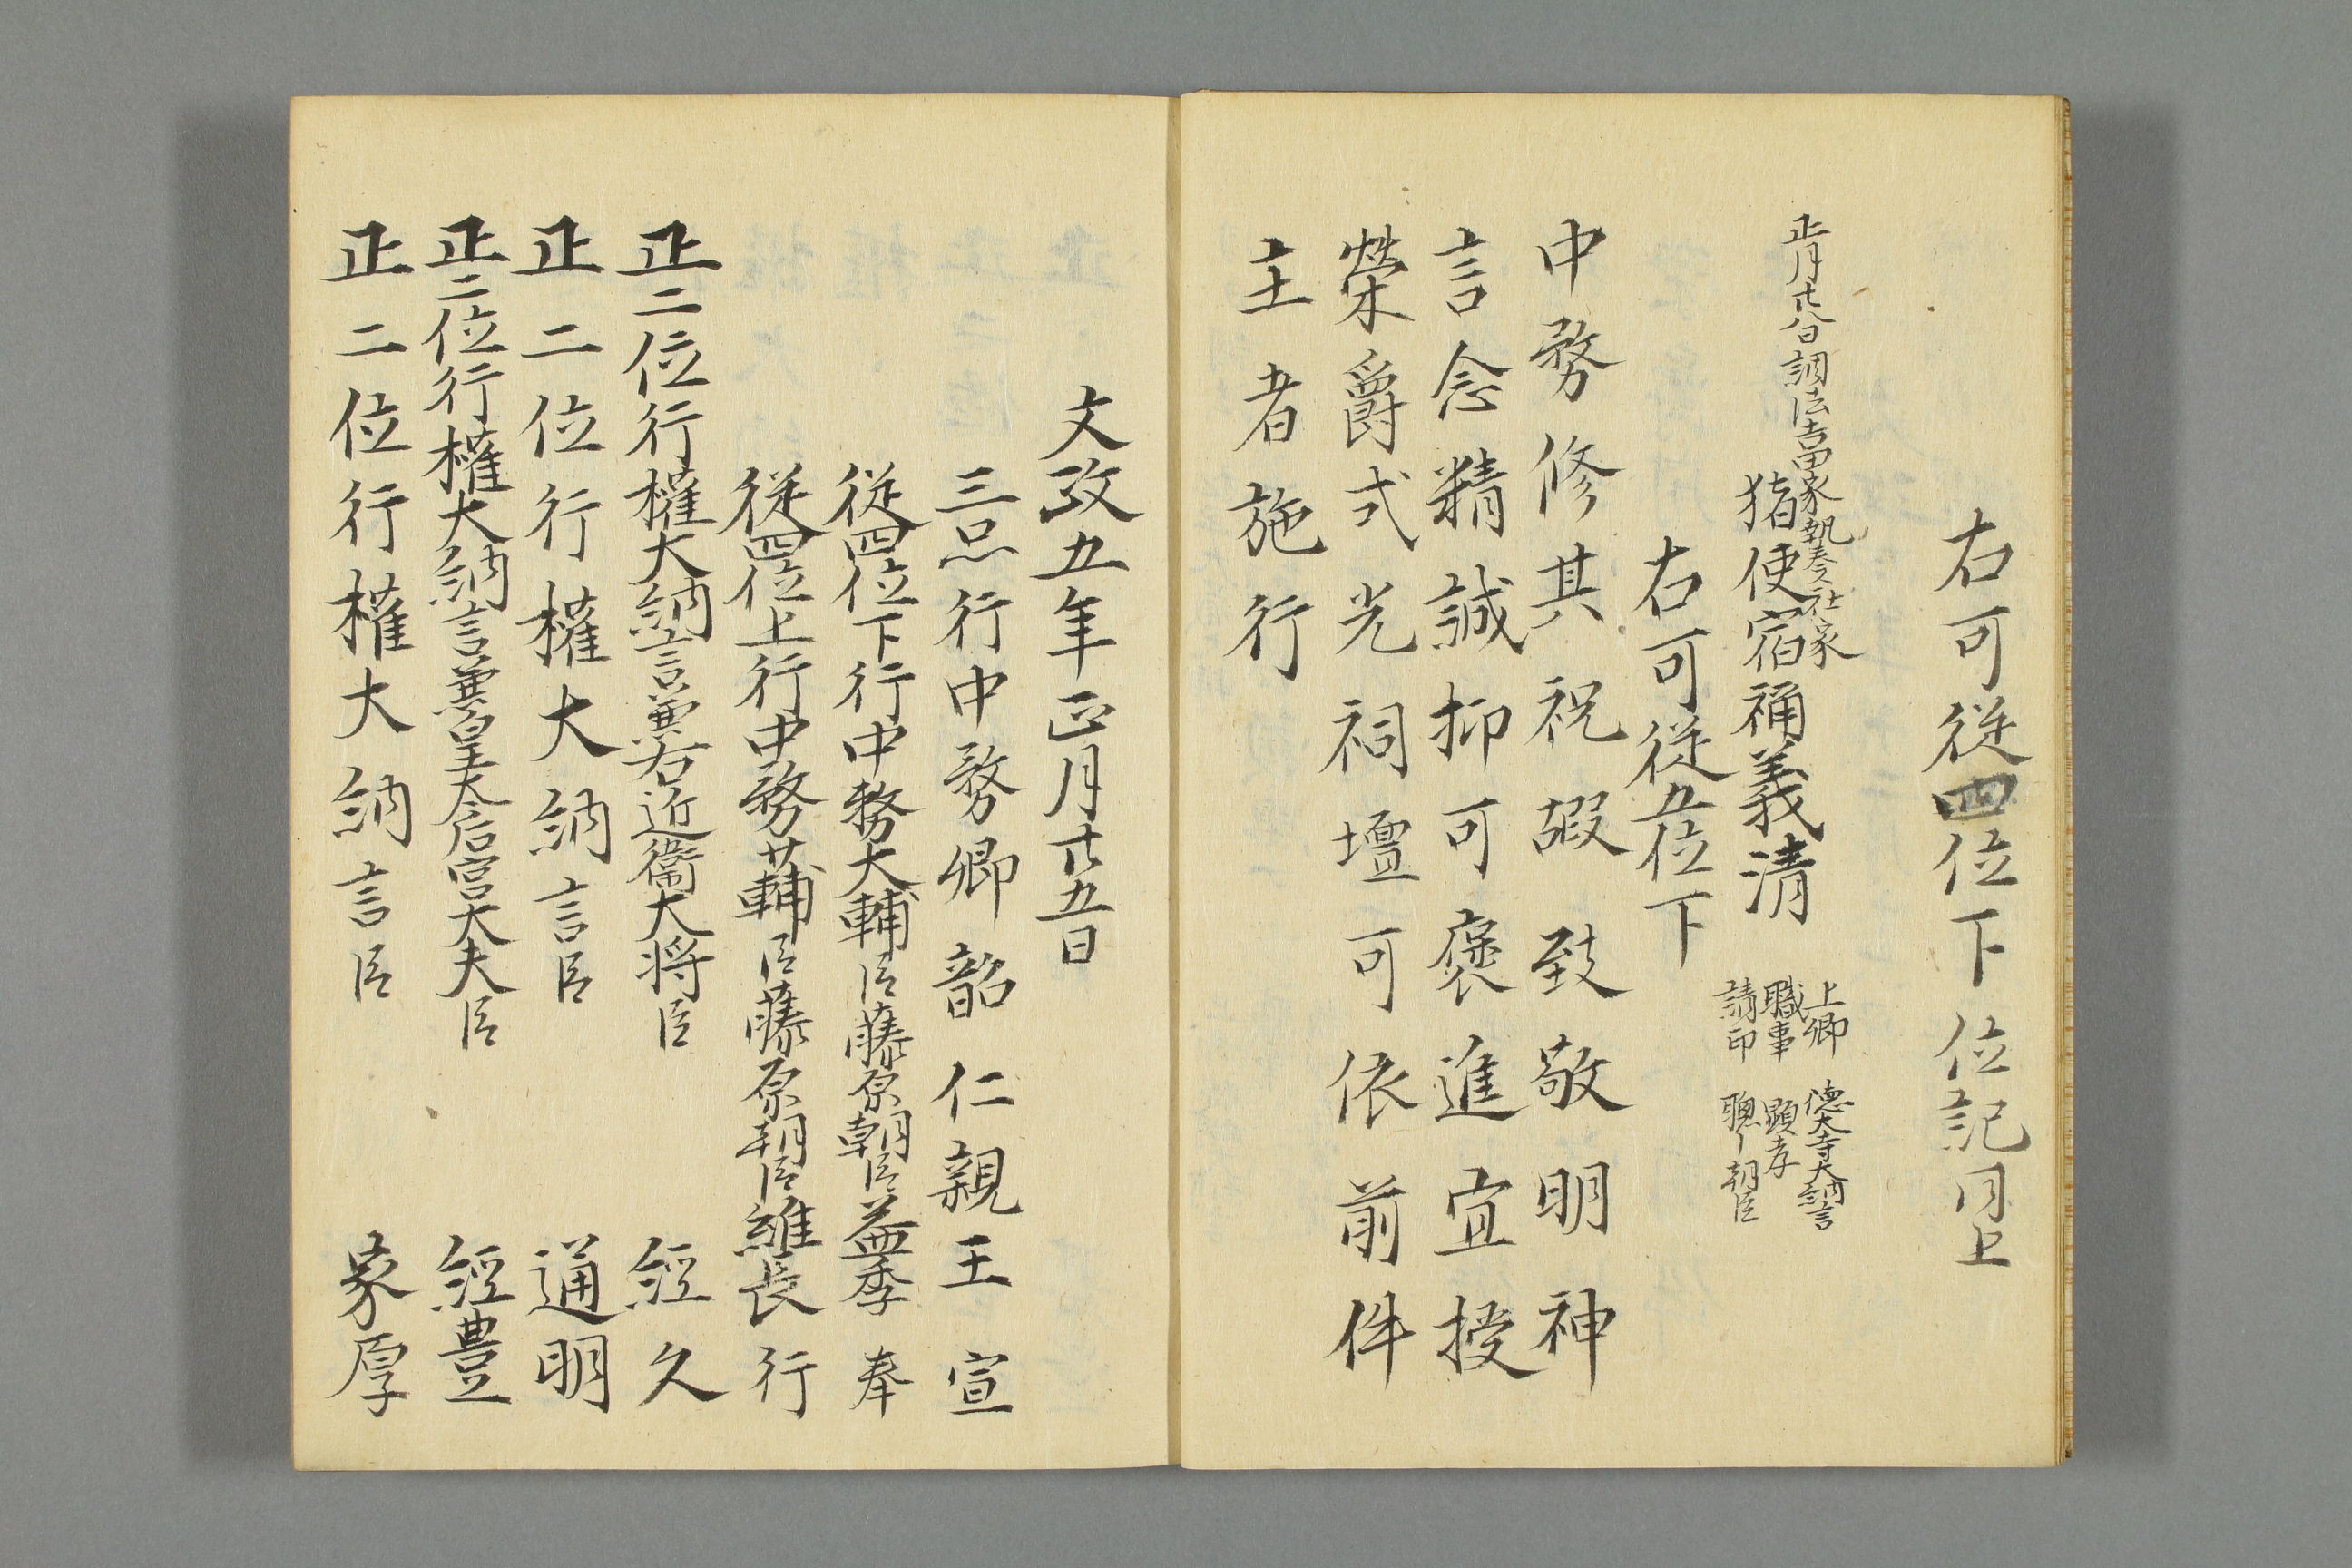 右可従四位下 位記同上
正月廿八日調法吉田家執奏社家
猪使宿祢義清
上卿 徳大寺大納言
職事 顕孝
請印 聰ー朝臣
右可従五位下
中務修其祝嘏致敬明神
言念精誠抑可褒進宜授
榮爵式光祠壇可依前件
主者施行
文政五年正月廿五日
三品行中務卿韶仁親王宣
従四位下行中務大輔臣藤原朝臣益季奉
従四位上行中務少輔臣藤原朝臣維長行
正二位行權大納言兼右近衞大将臣 経久
正二位行權大納言臣 通明
正二位行權大納言兼皇太后宮大夫臣 経豊
正二位行權大納言臣 家厚